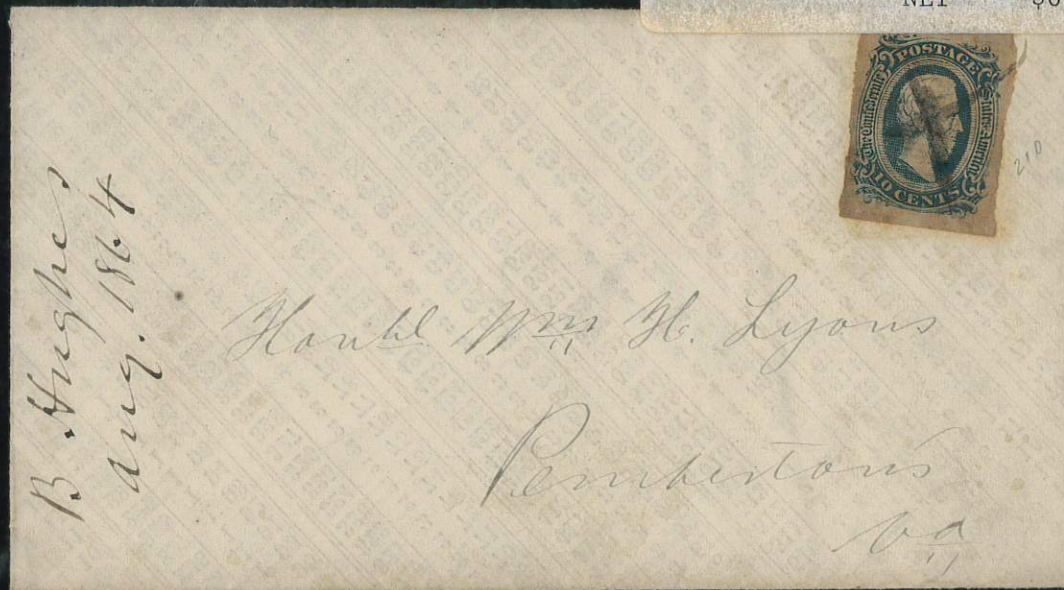 NET $6
POSTAGE
The Confederate States of America
10 CENTS
210
B. Hughes
Aug. 1864
Honbl Wm H. Lyons
Pembertons
Va